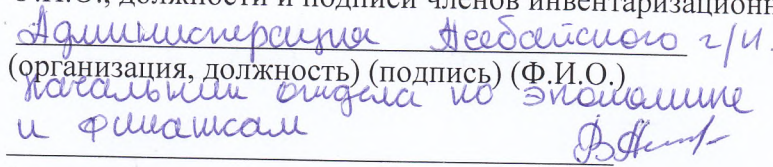 Ф.И.О., должности и подписи членов инвентаризационн
Администрация г/п.
(организация, должность) (подпись) (Ф.И.О.)
начальник отдела по экономике
и финансам